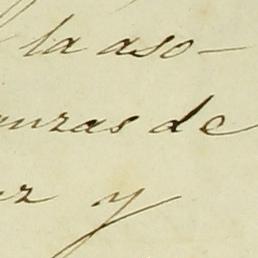 la aso-
anzas de
y